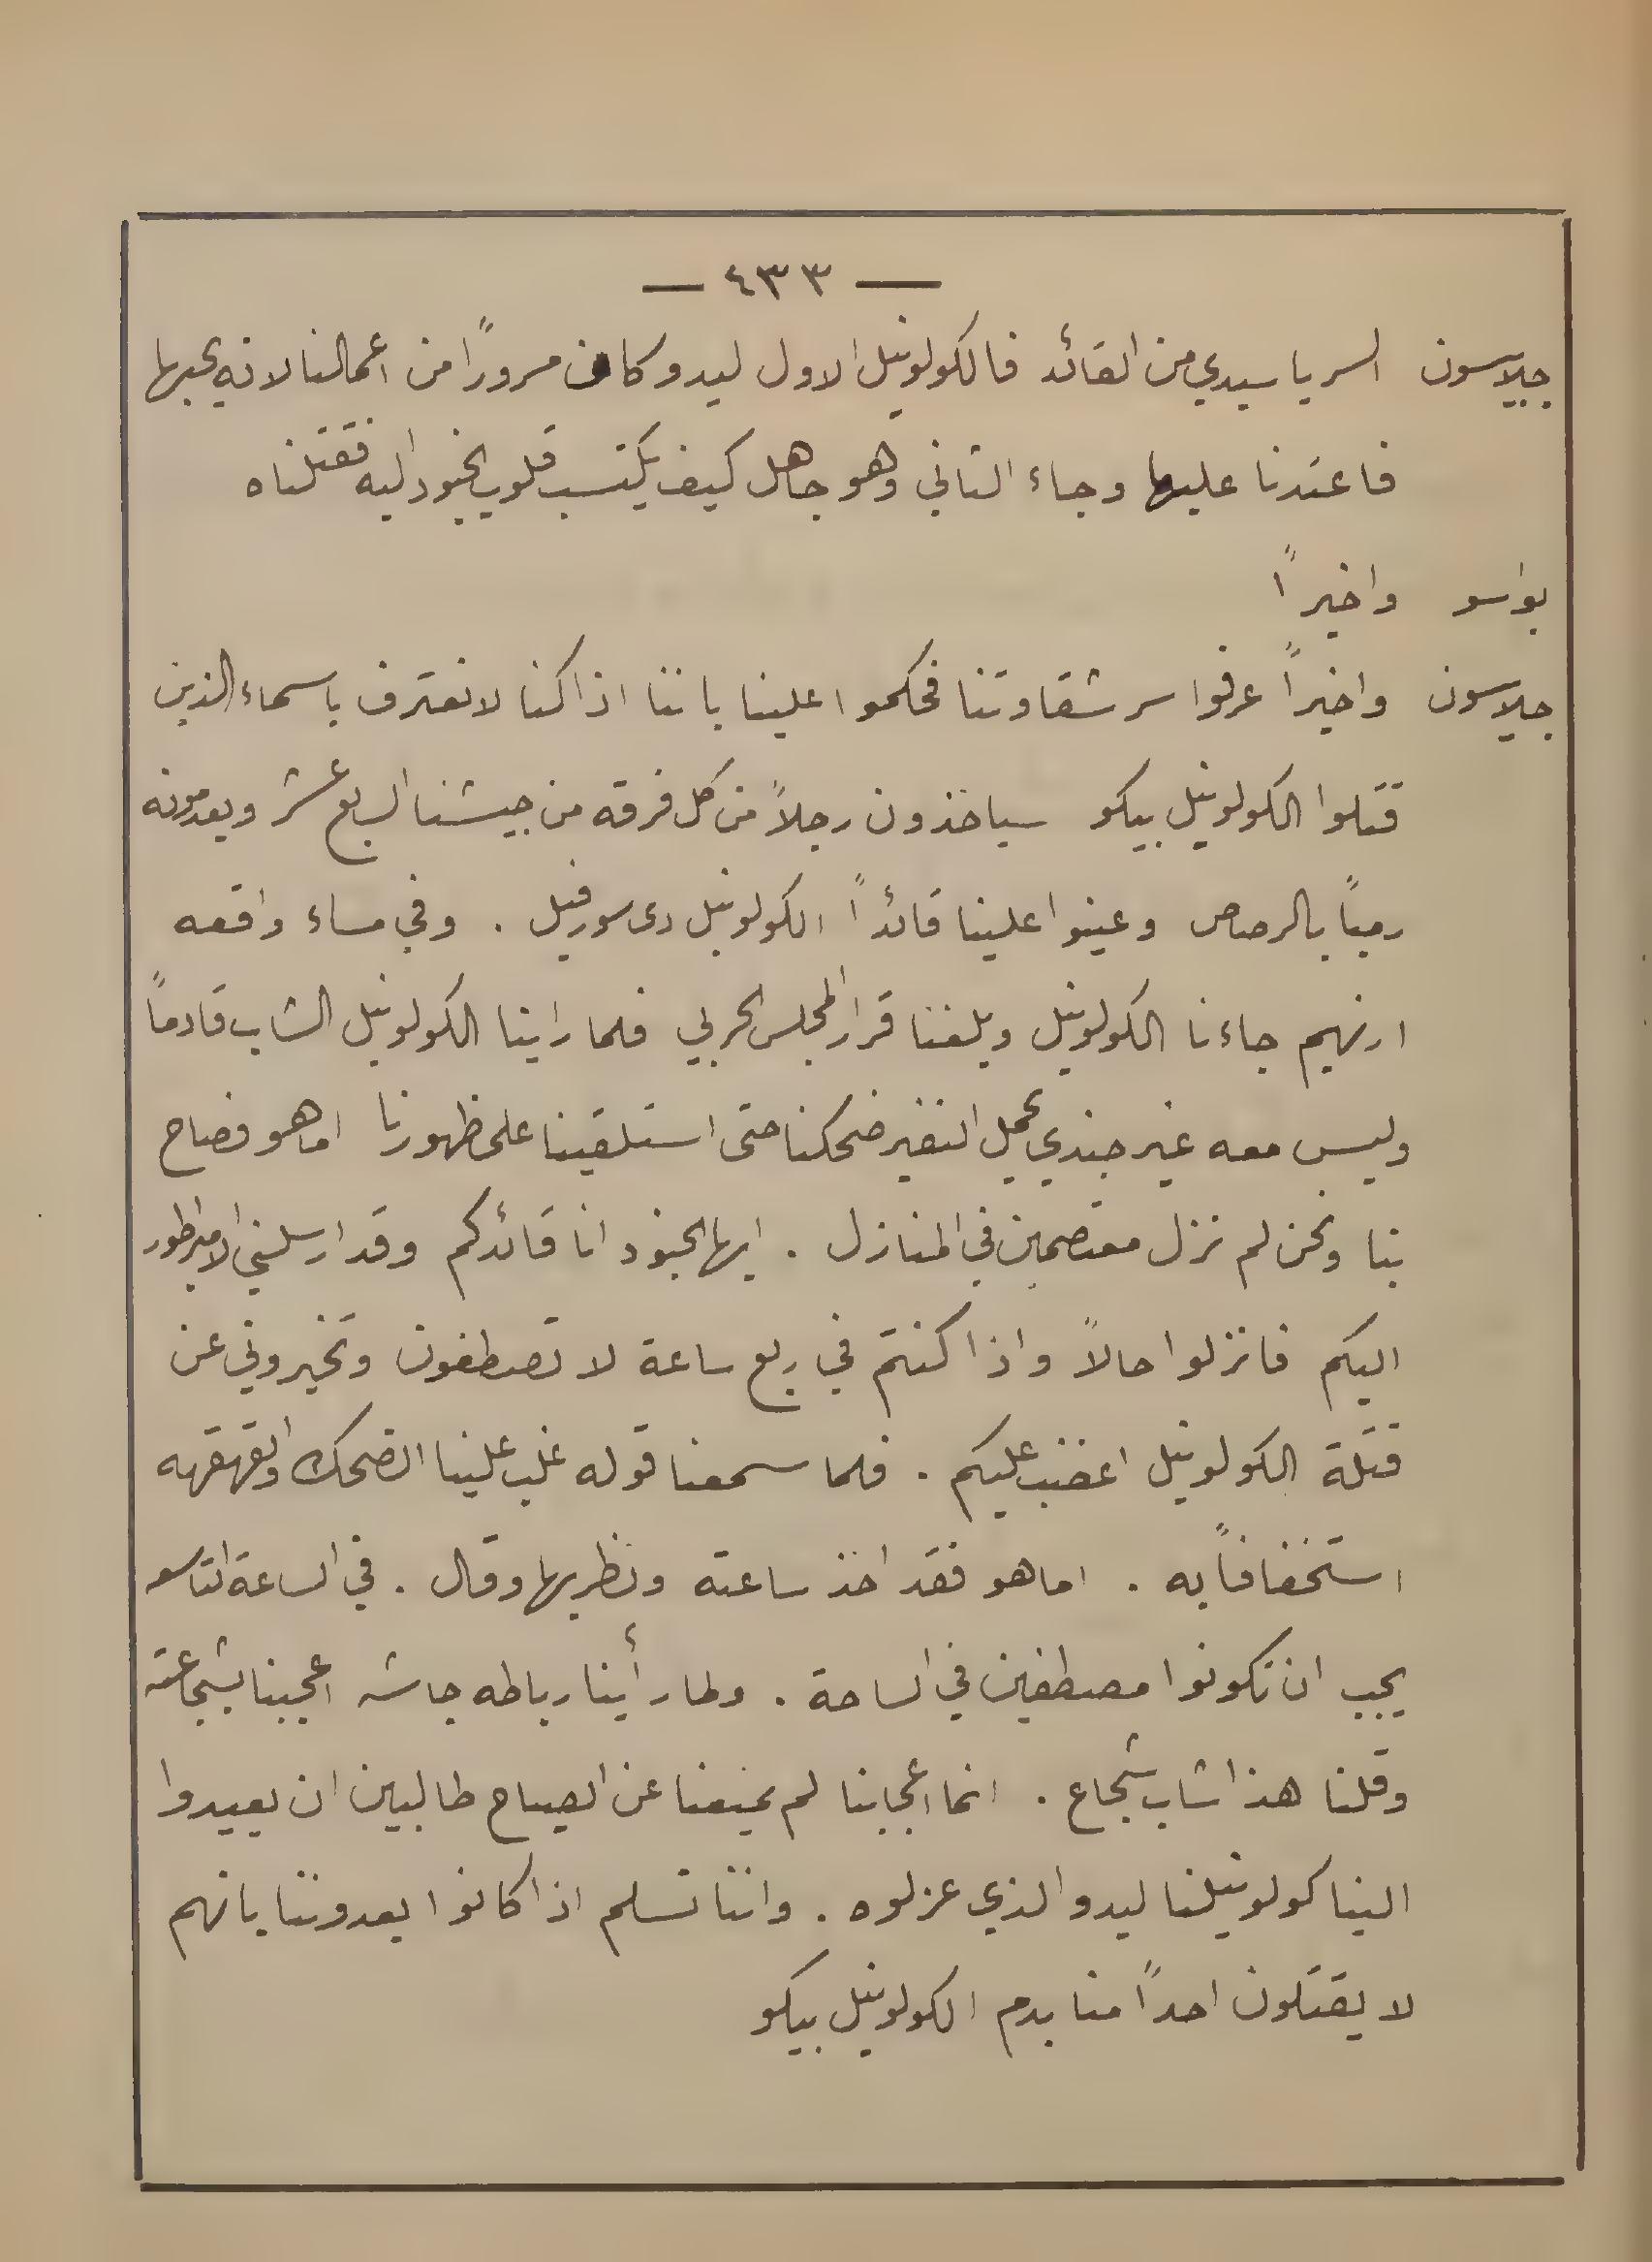 — ٤٣٣ —
جيلاسون السر يا سيدي من القائد فالكولونيل الاول ليدو كان مسرورًا من اعمالنا لانه يحبها
فاعتدنا عليها وجاء الثاني وهو جاهل كيف يكتسب قلوب الجنود اليه فقتلناه
بواسو واخيرًا
جيلاسون واخيرًا عرفوا سر شقاوتنا فحكموا علينا باننا اذا كنا لا نعترف باسماء الذين
قتلوا الكولونيل بيكو سياخذون رجلاً من كل فرقه من جيشنا السابع عشر ويعدمونه
رميًا بالرصاص وعينوا علينا قائدًا الكولونيل دى سورفيل . وفي مساء واقعه
ارنهيم جاءنا الكولونيل وبلغنا قرار المجلس الحربي فلما راينا الكولونيل الشاب قادمًا
وليس معه غير جندي يحمل النفير ضحكنا حتى استلقينا على ظهورنا اما هو فصاح
بنا ونحن لم نزل معتصمين في المنازل . ايها الجنود انا قائدكم وقد ارسلني الامبراطور
اليكم فانزلوا حالاً واذا كنتم في ربع ساعة لا تصطفون وتخبروني عن
قتلة الكولونيل اغضب عليكم . فلما سمعنا قوله غلب علينا الضحك والقهقهه
استخفافًا به . اما هو فقد اخذ ساعته ونظر بها وقال . في الساعة التاسعه
يجب ان تكونوا مصطفين في الساحة . ولما رأينا رباطه جاشه اعجبنا بشجاعته
وقلنا هذا شاب شجاع . انما اعجابنا لم يمنعنا عن الصياح طالبين ان يعيدوا
الينا كولونيلنا ليدو الذي عزلوه . واننا نسلم اذا كانوا يعدوننا بانهم
لا يقتلون احدًا منا بدم الكولونيل بيكو